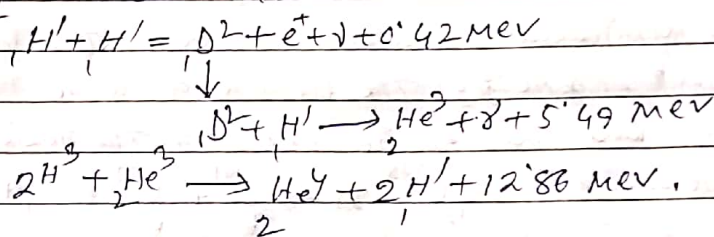 ₁H¹ + ₁H¹ = ₁D² + e⁺ + ν + 0.42 Mev
↓
₁D² + ₁H¹ → ₂He³ + γ + 5.49 Mev
2H³ + ₂He³ → ₂He⁴ + 2₁H¹ + 12.86 Mev.